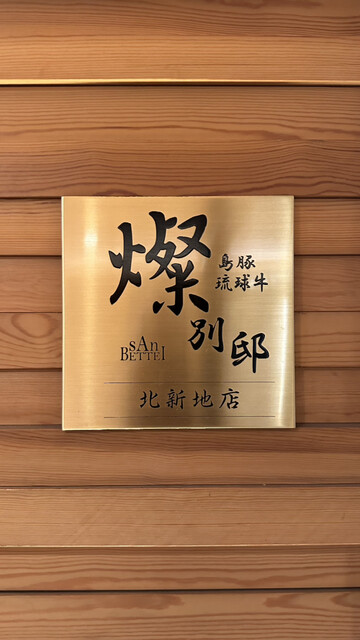 燦別邸
島豚
琉球牛
sAn
BETTEI
北新地店